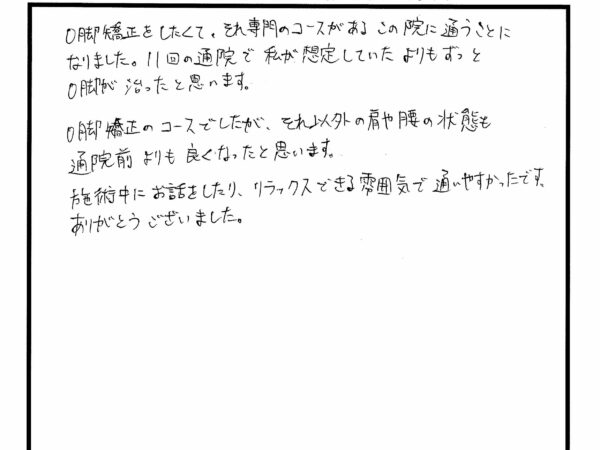 O脚矯正をしたくて、それ専門のコースがあるこの院に通うことに
なりました。11回の通院で私が想定していたよりもずっと
O脚が治ったと思います。
O脚矯正のコースでしたが、それ以外の肩や腰の状態も
通院前よりも良くなったと思います。
施術中にお話をしたり、リラックスできる雰囲気で通いやすかったです。
ありがとうございました。